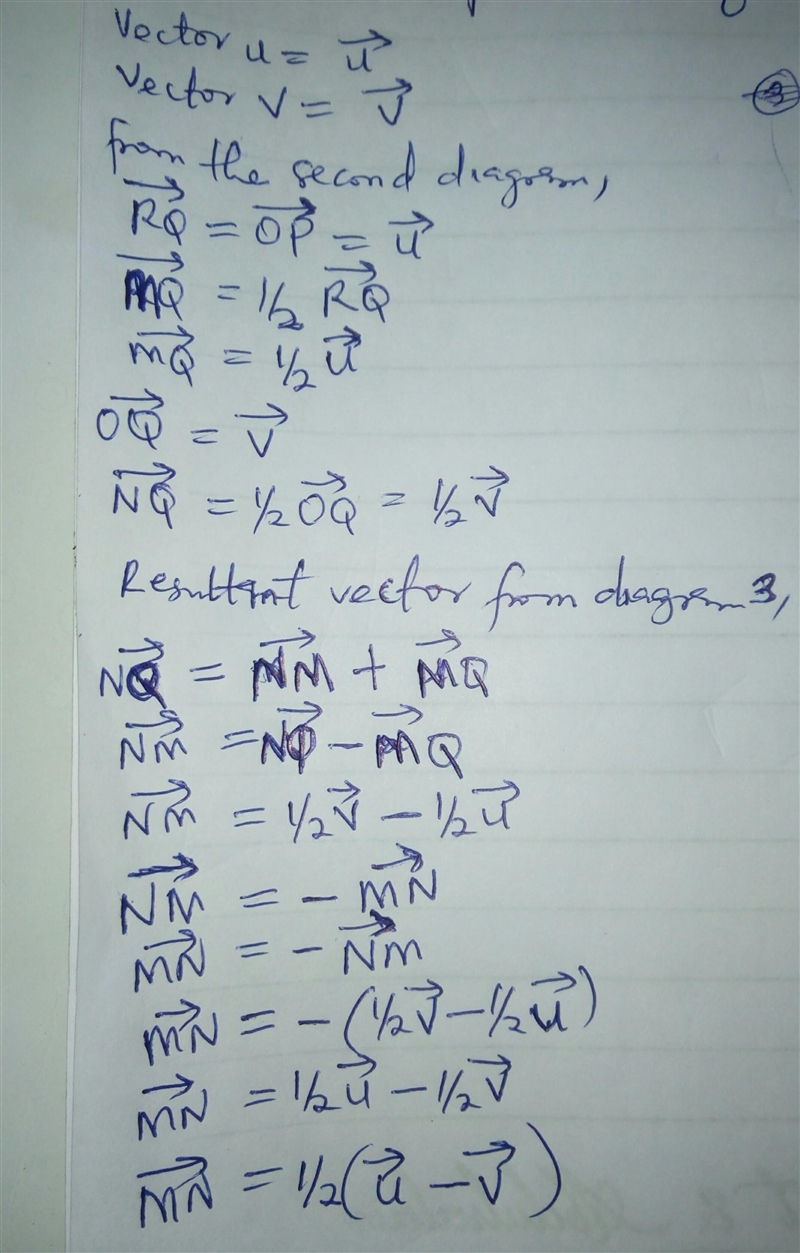 Vector u = u⃗
Vector V = V⃗
3
from the second diagram,
RQ⃗ = OP⃗ = u⃗
MQ⃗ = 1/2 RQ⃗
MQ⃗ = 1/2 u⃗
OQ⃗ = V⃗
NQ⃗ = 1/2 OQ⃗ = 1/2 V⃗
Resultant vector from diagram 3,
NQ⃗ = NM⃗ + MQ⃗
NM⃗ = NQ⃗ - MQ⃗
NM⃗ = 1/2 V⃗ - 1/2 u⃗
NM⃗ = - MN⃗
MN⃗ = - NM⃗
MN⃗ = - (1/2 V⃗ - 1/2 u⃗)
MN⃗ = 1/2 u⃗ - 1/2 V⃗
MN⃗ = 1/2 (u⃗ - V⃗)